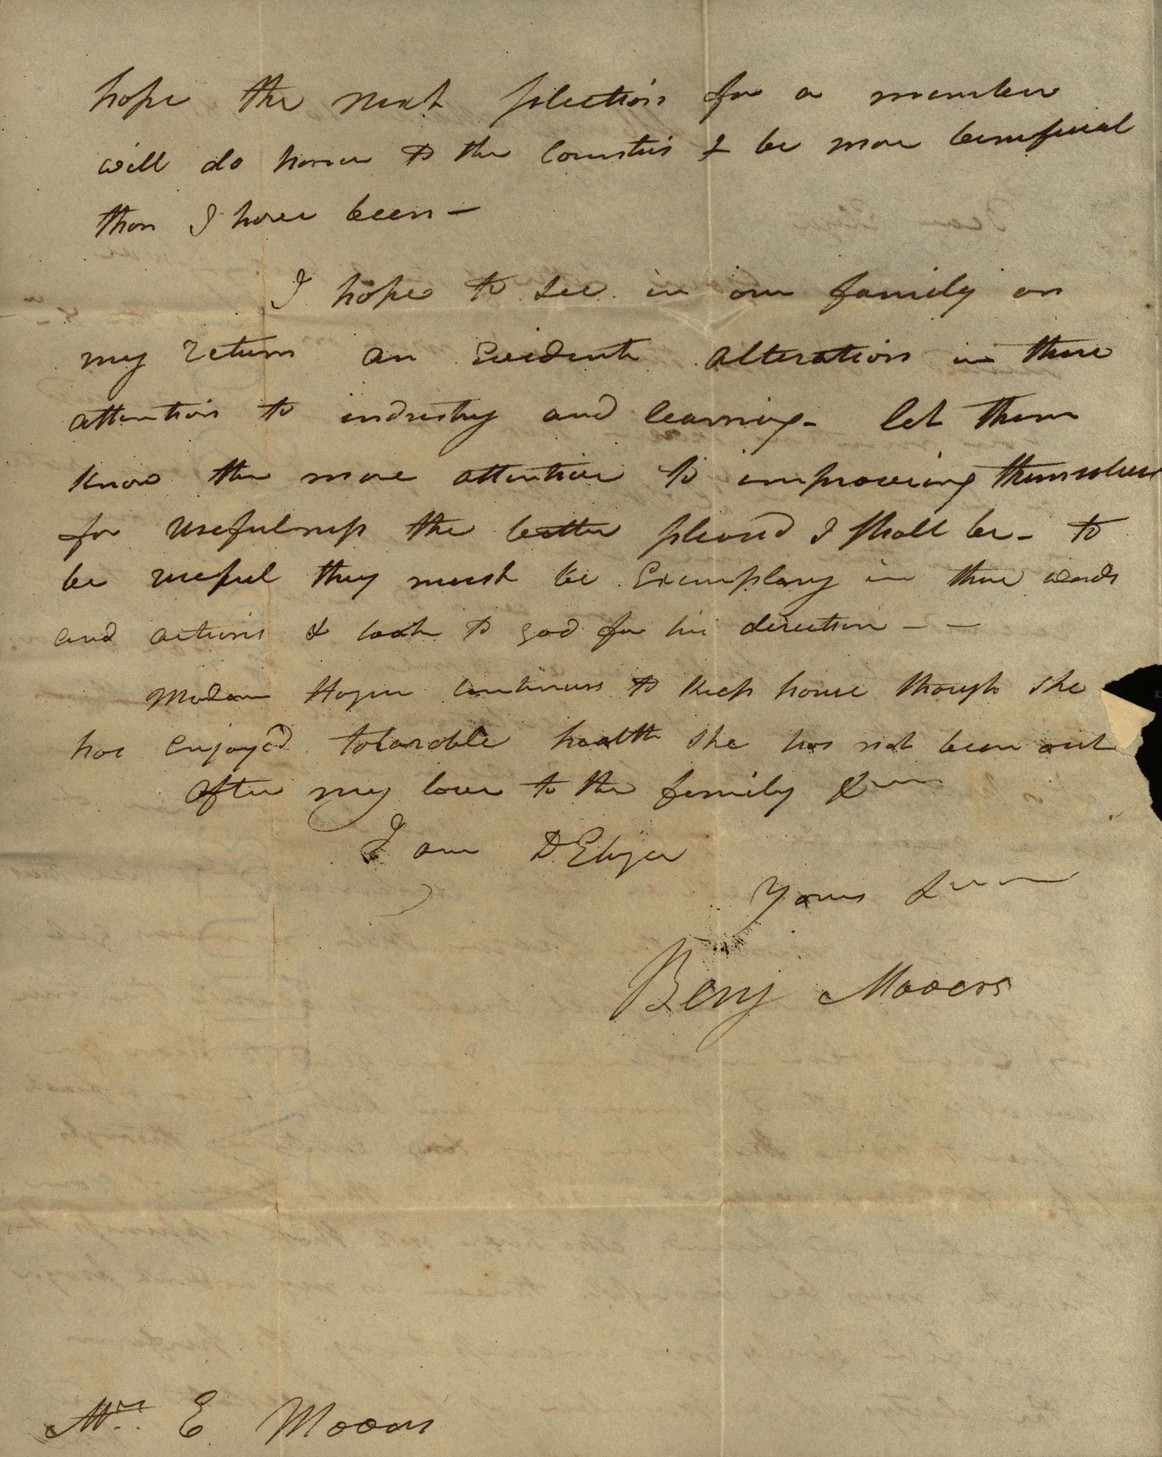 hope the next Election for a member
will do honor to the Counties & be more beneficial
than I have been —
I hope to see in our family on
my return an Evident alteration in there
attention to industry and learning - let them
know the more attentive to improveing themselves
for usefulness the better pleasd I shall be - to
be useful they must be Exemplary in there words
and actions & look to god for his direction — —
Madam Hagen continues to keep house though she
has enjoyed tolarable health she has not been out
After my love to the family &
I am D Eliza
Yours &
Benj Mooers
Mrs E Mooers